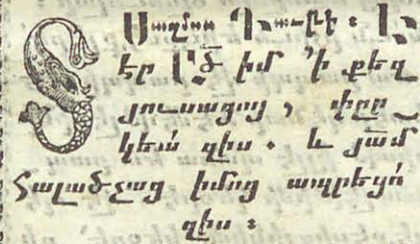 Սաղմոս Դաւթի ։ Է
Տէր Ա՟ծ իմ ՚ի քեզ
յուսացայ , փըր֊
կեա՛ զիս . և յա՟մ
հալածչաց իմոց ապրեցո՛
զիս ։